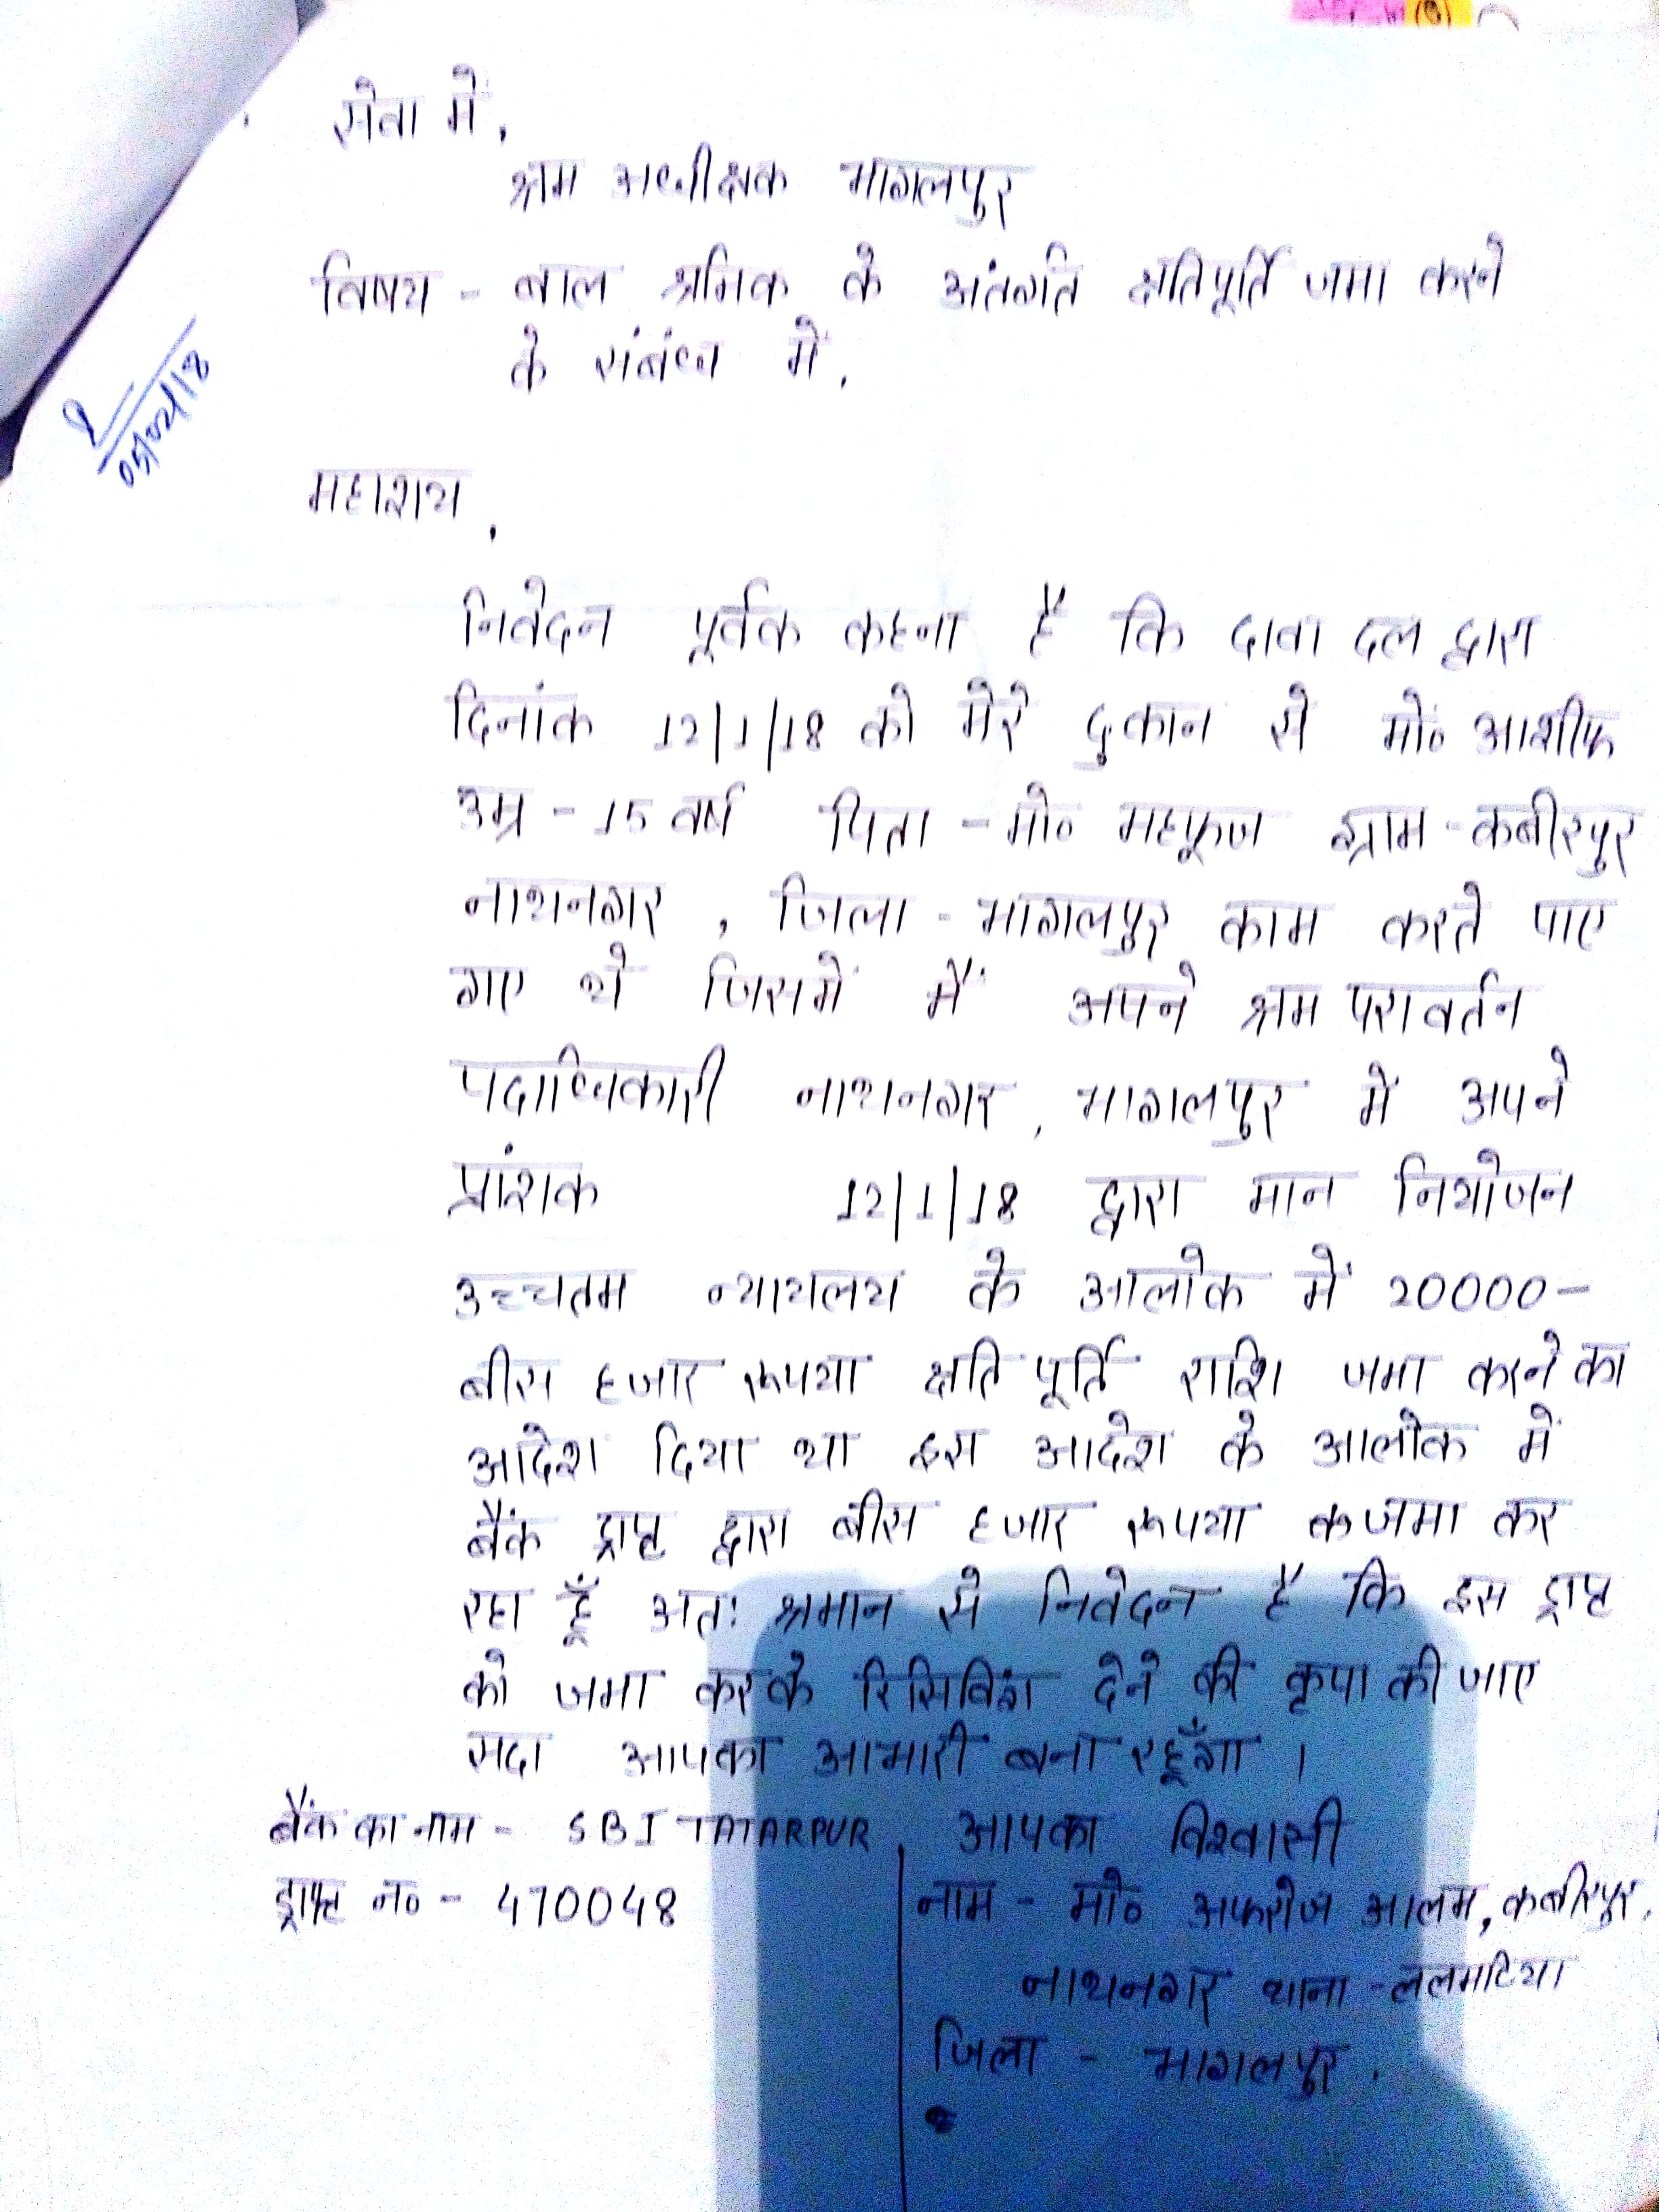 सेवा में,
श्रम अधीक्षक भागलपुर
विषय - बाल श्रमिक के अंतर्गत क्षतिपूर्ति जमा करने
के संबंध में,
05/02/18
महाशय,
निवेदन पूर्वक कहना है कि दावा दल द्वारा
दिनांक 12/1/18 को मेरे दुकान से मो० आशीफ
उम्र - 15 वर्ष पिता - मो० महफूज ग्राम - कबीरपुर
नाथनगर, जिला - भागलपुर काम करते पाए
गए थे जिसमें मैं अपने श्रम परावर्तन
पदाधिकारी नाथनगर, भागलपुर में अपने
प्रांशक 12/1/18 द्वारा मान नियोजन
उच्चतम न्यायलय के आलोक में 20000-
बीस हजार रूपया क्षति पूर्ति राशि जमा करने का
आदेश दिया था इस आदेश के आलोक में
बैंक ड्राप्ट द्वारा बीस हजार रूपया क जमा कर
रहा हूँ अतः श्रमान से निवेदन है कि इस ड्राप्ट
को जमा करके रिसिविंग देने की कृपा की जाए
सदा आपका आभारी बना रहूँगा ।
बैंक का नाम - SBI TATARPUR आपका विश्वासी
ड्राप्ट न० - 470048 नाम - मो० अफरोज आलम, कबीरपुर,
नाथनगर थाना - ललमटिया
जिला - भागलपुर.